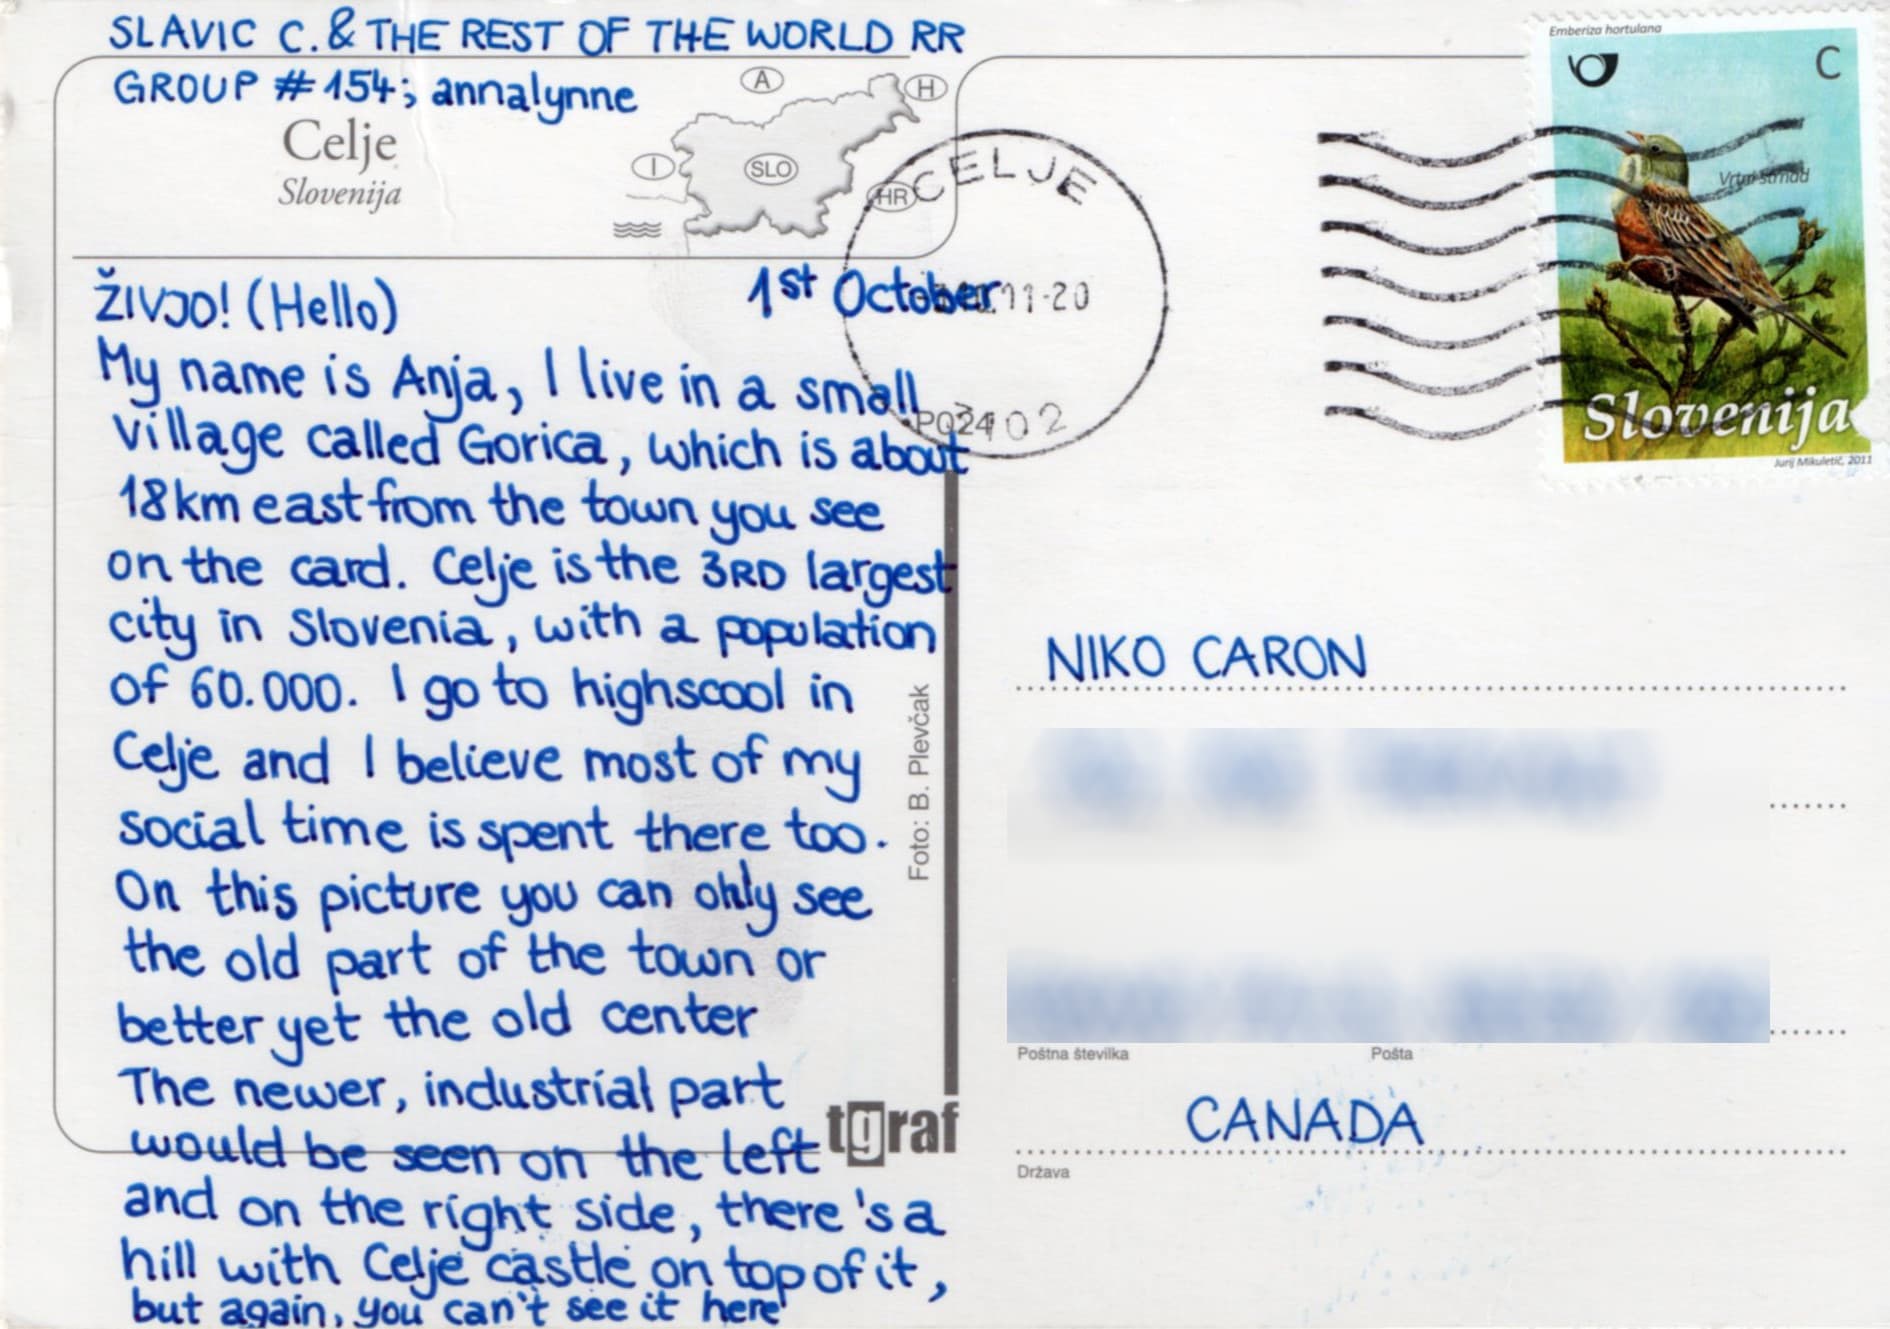 SLAVIC C. & THE REST OF THE WORLD RR
GROUP #154; annalynne
Celje
Slovenija
A
H
I
SLO
HR
CELJE
11-20
3102
ŽIVJO! (Hello)
1st October
My name is Anja, I live in a small
village called Gorica, which is about
18km east from the town you see
on the card. Celje is the 3RD largest
city in Slovenia, with a population
of 60.000. I go to highscool in
Celje and I believe most of my
social time is spent there too.
On this picture you can only see
the old part of the town or
better yet the old center
The newer, industrial part
would be seen on the left
and on the right side, there's a
hill with Celje castle on top of it,
but again, you can't see it here
Foto: B. Plevčak
tgraf
Emberiza hortulana
C
Vrtni strnad
Slovenija
Jurij Mikuletič, 2011
NIKO CARON
Poštna številka
Pošta
CANADA
Država